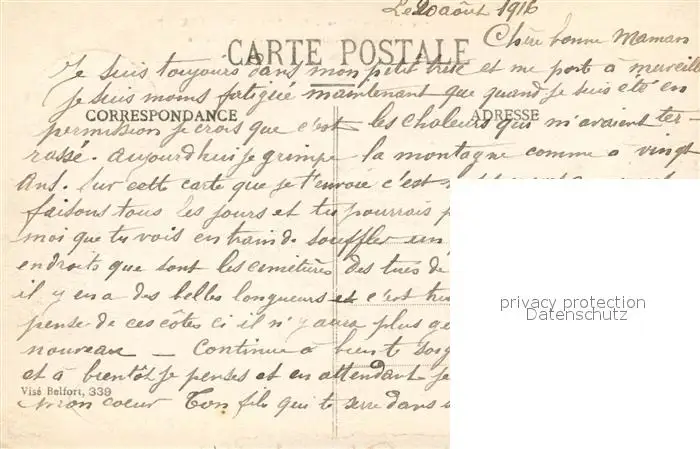 Le 20 août 1916
CARTE POSTALE
Chère bonne Maman
Je suis toujours dans mon petit et me porte à merveille
je suis moins fatigué maintenant que quand je suis été en
CORRESPONDANCE
ADRESSE
permission je crois que c'est les chaleurs qui m'avaient ter-
rassé. aujourd'hui je grimpe la montagne comme a vingt
Ans. Sur cette carte que je t'envoie c'est
faisons tous les jours et tu pourrais
moi que tu vois en train de souffler en
endroits que sont les cimetières des tués de
il y en a des belles longueurs et c'est
pense de ces côtes ci il n'y aura plus
nouveau — Continue à bien te
et à bientôt je penses et en attendant je
Visé Belfort, 339
mon coeur Ton fils qui te serre dans
privacy protection
Datenschutz